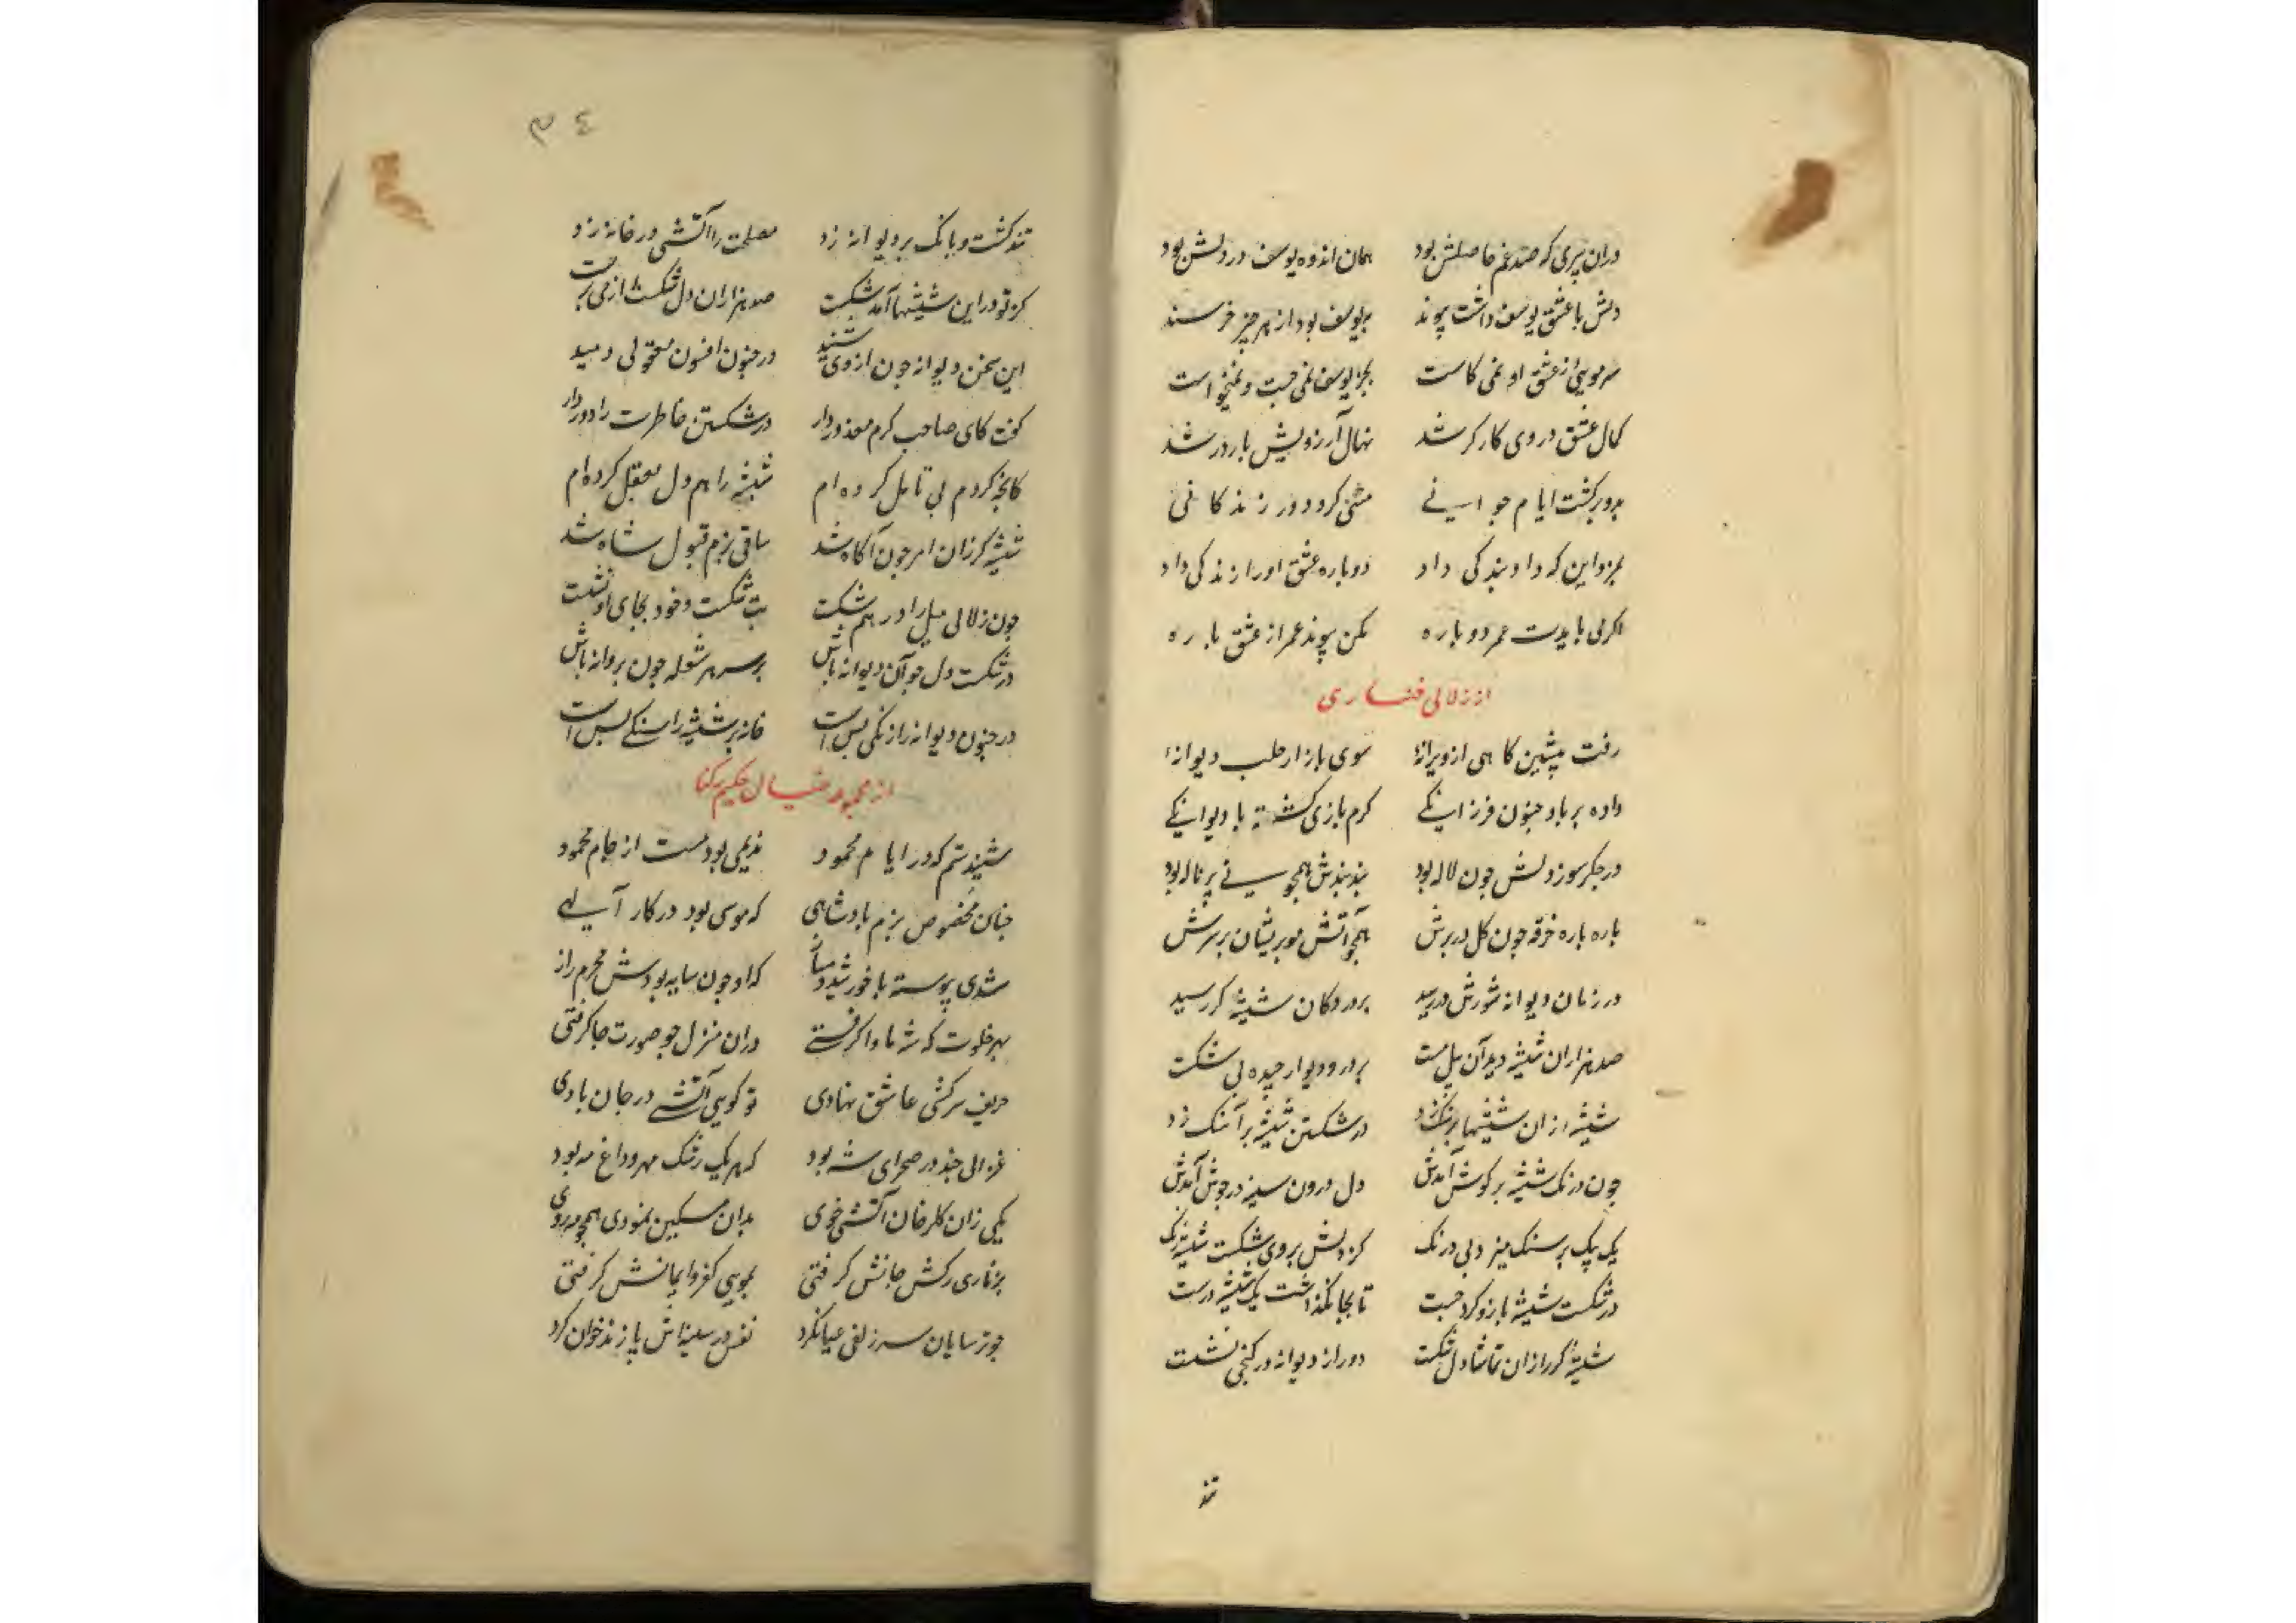 دران پیری که صد غم حاصلش بود همان اندوه یوسف در دلش بود
دلش با عشق یوسف داشت پیوند بیوسف بود از هر چیز خرسند
سر مویی از عشق او نمی کاست بجز یوسف نمی جست و نمیخواست
کمال عشق در وی کارگر شد نهال آرزویش بارور شد
برو برکشت ایام جوانی مثنی کرد دور زندکانی
بمزد این که داد بندکی داد دوباره عشق او را زندکی داد
اکر می بایدت عمر دوباره مکن پیوند عمر از عشق باره
از زلالی خنساری
رفت پیشین کاهی از ویرانهٔ سوی بازار حلب دیوانهٔ
داده بر باد جنون فرزانکی کرم بازی کشته با دیوانکی
در جکر سوز دلش چون لاله بود بند بندش همچو نی پر ناله بود
باره باره خرقه چون کل در برش همچو آتش مو پریشان بر سرش
در زمان دیوانه شورش در رسید بر در دکان شیشه کر رسید
صد هزاران شیشه دید آن پیل مست بر در و دیوار چیده بی شکست
شیشه از ان شیشها بر سنک زد در شکستن شیشه بر آهنک زد
چون درنک شیشه بر کوش آمدش دل درون سینه در جوش آمدش
یک بیک بر سنک میزد بی درنک کز دلش بر وی شکست شیشه رنک
در شکست شیشه بازو کرد چست تا بجا نکذاشت یک شیشه درست
شیشه کر از ان تماشا دل شکست دور از دیوانه در کنجی نشست
تند
۳۴
تند کشت و بانک بر دیوانه زد مصلحت را آتشی در خانه زد
کز تو در این شیشها آمد شکست صد هزاران دل شکست از می پرست
این سخن دیوانه چون از وی شنید در جنون افسون معقولی دمید
کفت کای صاحب کرم معذور دار در شکستن خاطرت را دور دار
کانچه کردم بی تامل کرده ام شیشه را هم دل معقل کرده ام
شیشه کر زان امر چون آکاه شد ساقی بزم قبول شاه شد
چون زلالی میل را در هم شکست بت شکست و خود بجای او نشست
در شکست دل چو آن دیوانه باش بر سر هر شعله چون پروانه باش
در جنون دیوانه را زنکی بس است خانه پر شیشه را سنکی بس است
از مجموعه خیال حکیم رکنا
شنیدستم که در ایام محمود ندیمی بود مست از جام محمود
چنان مخصوص بزم بادشاهی که موسی بود در کار آلهی
شدی پیوسته با خورشید دمساز که او چون سایه بودش محرم راز
بهر خلوت که شه ماوا کرفتی دران منزل چو صورت جا کرفتی
حریف سرکشی عاشق نهادی تو کویی آتشی در جان بادی
غزالی چند در صحرای شه بود که هر یک رشک مهر و داغ مه بود
یکی زان کلرخان آتشی خوی بدان مسکین نمودی همچو مه روی
بزناری رکش جانش کرفتی بمویی کفر و ایمانش کرفتی
چو ترسایان سر زلفی عیان کرد نفس در سینه اش پازند خوان کرد